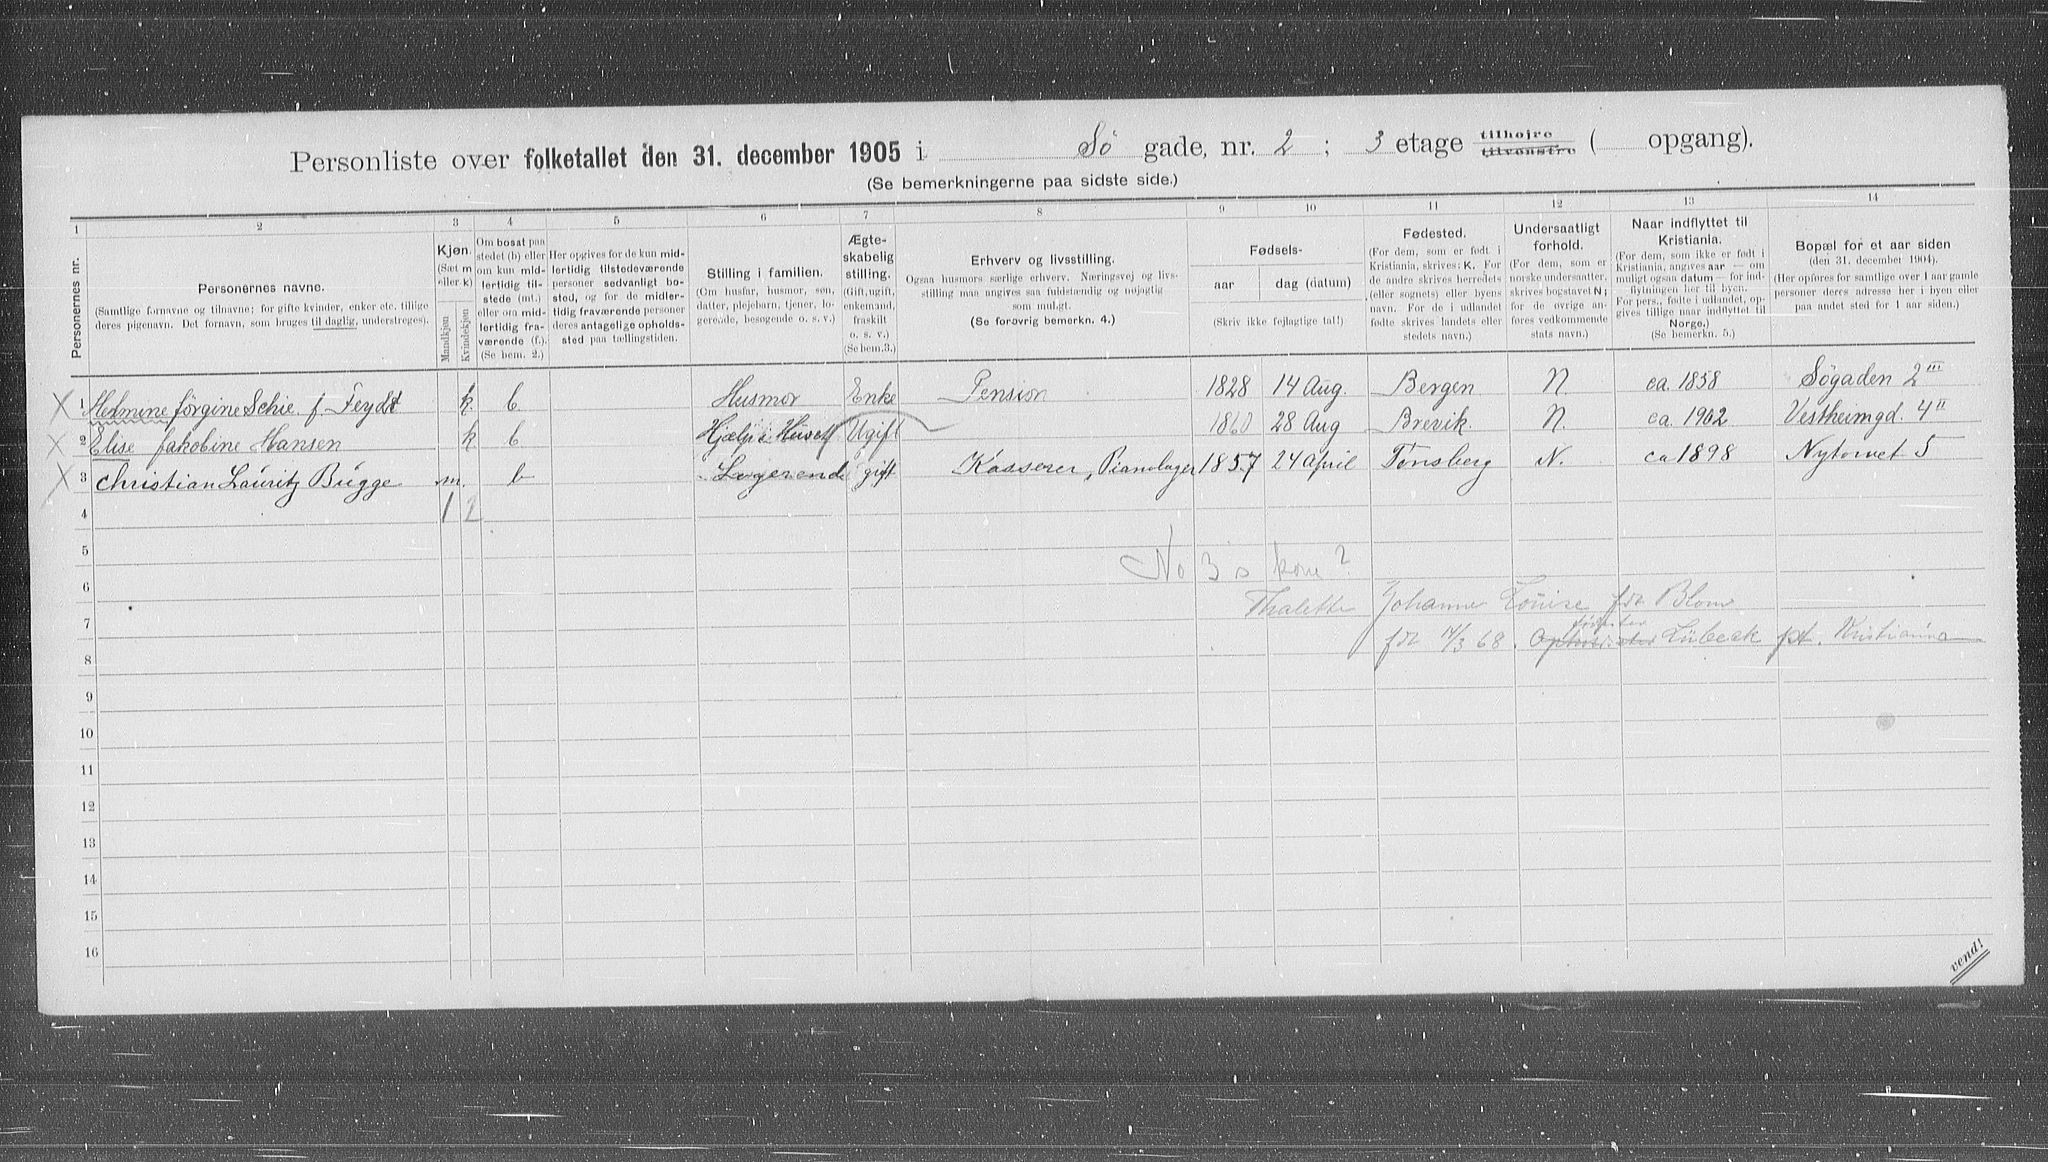 Personliste over folketallet den 31. december 1905 i Sö gade, nr. 2 ; 3 etage tilhøjre tilvenstre ( opgang).
(Se bemerkningerne paa sidste side.)
1 2 3 4 5 6 7 8 9 10 11 12 13 14
Personernes nr.
Personernes navne.
(Samtlige fornavne og tilnavne; for gifte kvinder, enker etc. tillige
deres pigenavn. Det fornavn, som bruges til daglig, understreges).
Kjøn.
(Sæt m
eller k)
Mandkjøn
Kvindekjøn
Om bosat paa
stedet (b) eller
om kun mid-
lertidig til-
stede (mt.)
eller om mid-
lertidig fra-
værende (f.).
(Se bem. 2.)
Her opgives for de kun mid-
lertidig tilstedeværende
personer sedvanligt bo-
sted, og for de midler-
tidig fraværende personer
deres antagelige opholds-
sted paa tællingstiden.
Stilling i familien.
(Om husfar, husmor, søn,
datter, plejebarn, tjener, lo-
gerende, besøgende o. s. v.)
Ægte-
skabelig
stilling.
(Gift, ugift,
enkemand,
fraskilt
o. s. v.)
(Se bem. 3.)
Erhverv og livsstilling.
Ogsaa husmors særlige erhverv. Næringsvej og livs-
stilling maa angives saa fuldstændig og nøjagtig
som muligt.
(Se forøvrig bemerkn. 4.)
Fødsels-
aar dag (datum)
(Skriv ikke fejlagtige tal!)
Fødested.
(For dem, som er født i
Kristiania, skrives: K. For
de andre skrives herredets
(eller sognets) eller byens
navn. For de i udlandet
fødte skrives landets eller
stedets navn.)
Undersaatligt
forhold.
(For dem, som er
norske undersaatter,
skrives bogstavet N;
for de øvrige an-
føres vedkommende
stats navn.)
Naar indflyttet til
Kristiania.
(For dem, som ikke er født i
Kristiania, angives aar — om
muligt ogsaa datum — for ind-
flytningen her til byen.
For pers., fødte i udlandet, op-
gives tillige naar indflyttet til
Norge.)
(Se bemerkn. 5.)
Bopæl for et aar siden
(den 31. december 1904).
(Her opføres for samtlige over 1 aar gamle
personer deres adresse her i byen eller
paa andet sted for 1 aar siden.)
X 1 Helmine Jörgine Schie f. Feydt k. b Husmor Enke Pension 1828 14 Aug. Bergen N ca. 1858 Søgaden 2 III
X 2 Elise Jakobine Hansen k b Hjælp i Huset Ugift 1860 28 Aug Brevik. N. ca. 1902 Vestheimgd. 4 II
X 3 Christian Lauritz Bugge m. b Logerende gift Kasserer, Pianolager 1857 24 April Tønsberg N. ca 1898 Nytorvet 5
4 1 2
5
6 No 3 s kone?
7 Thalette Johanne Louise född Blom
8 17/3 68. Lübeck pt. Kristiania
9
10
11
12
13
14
15
16
vend!